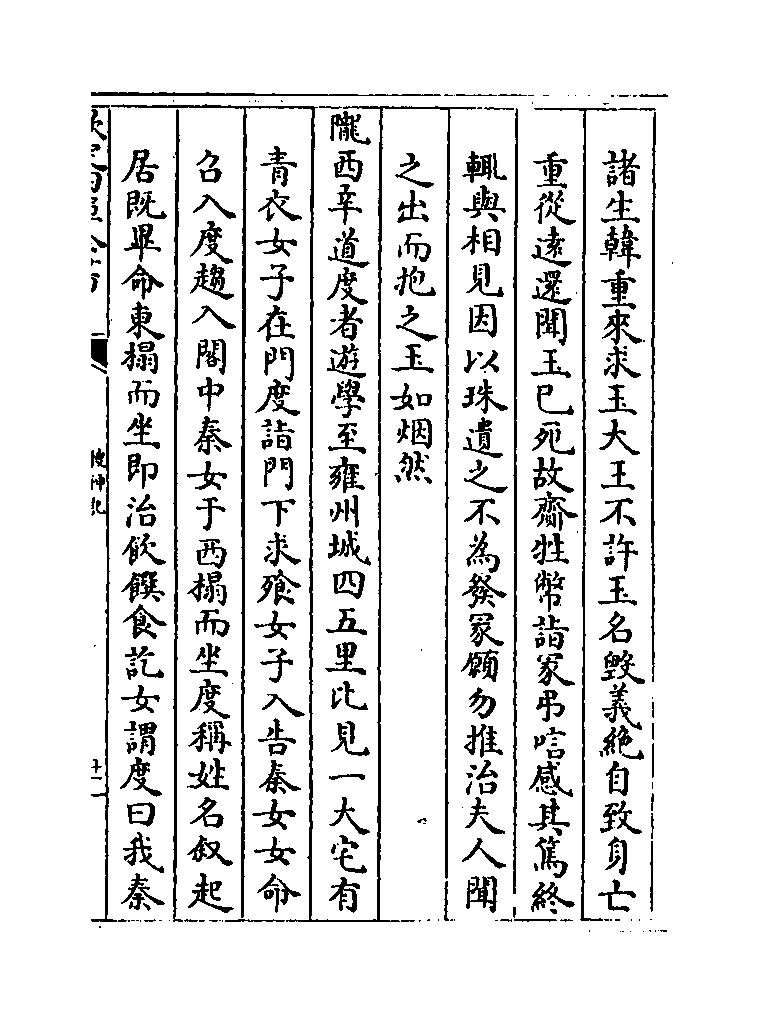 諸生韓重來求玉大王不許玉名毀義絶自致身亡
重從遠還聞玉已死故齎牲幣詣冢弔唁感其篤終
輙與相見因以珠遺之不為發冢願勿推治夫人聞
之出而抱之玉如烟然
隴西辛道度者遊學至雍州城四五里比見一大宅有
青衣女子在門度詣門下求飱女子入告秦女女命
召入度趨入閣中秦女于西榻而坐度稱姓名叙起
居既畢命東榻而坐即治飲饌食訖女謂度曰我秦
搜神記
十二